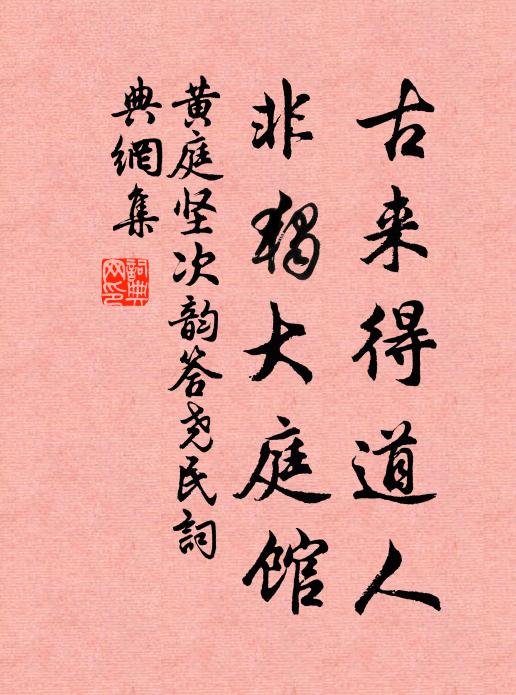 古来得道人
非独大庭馆
黄庭坚次韵答尧民詞
典網集
詞典
网印